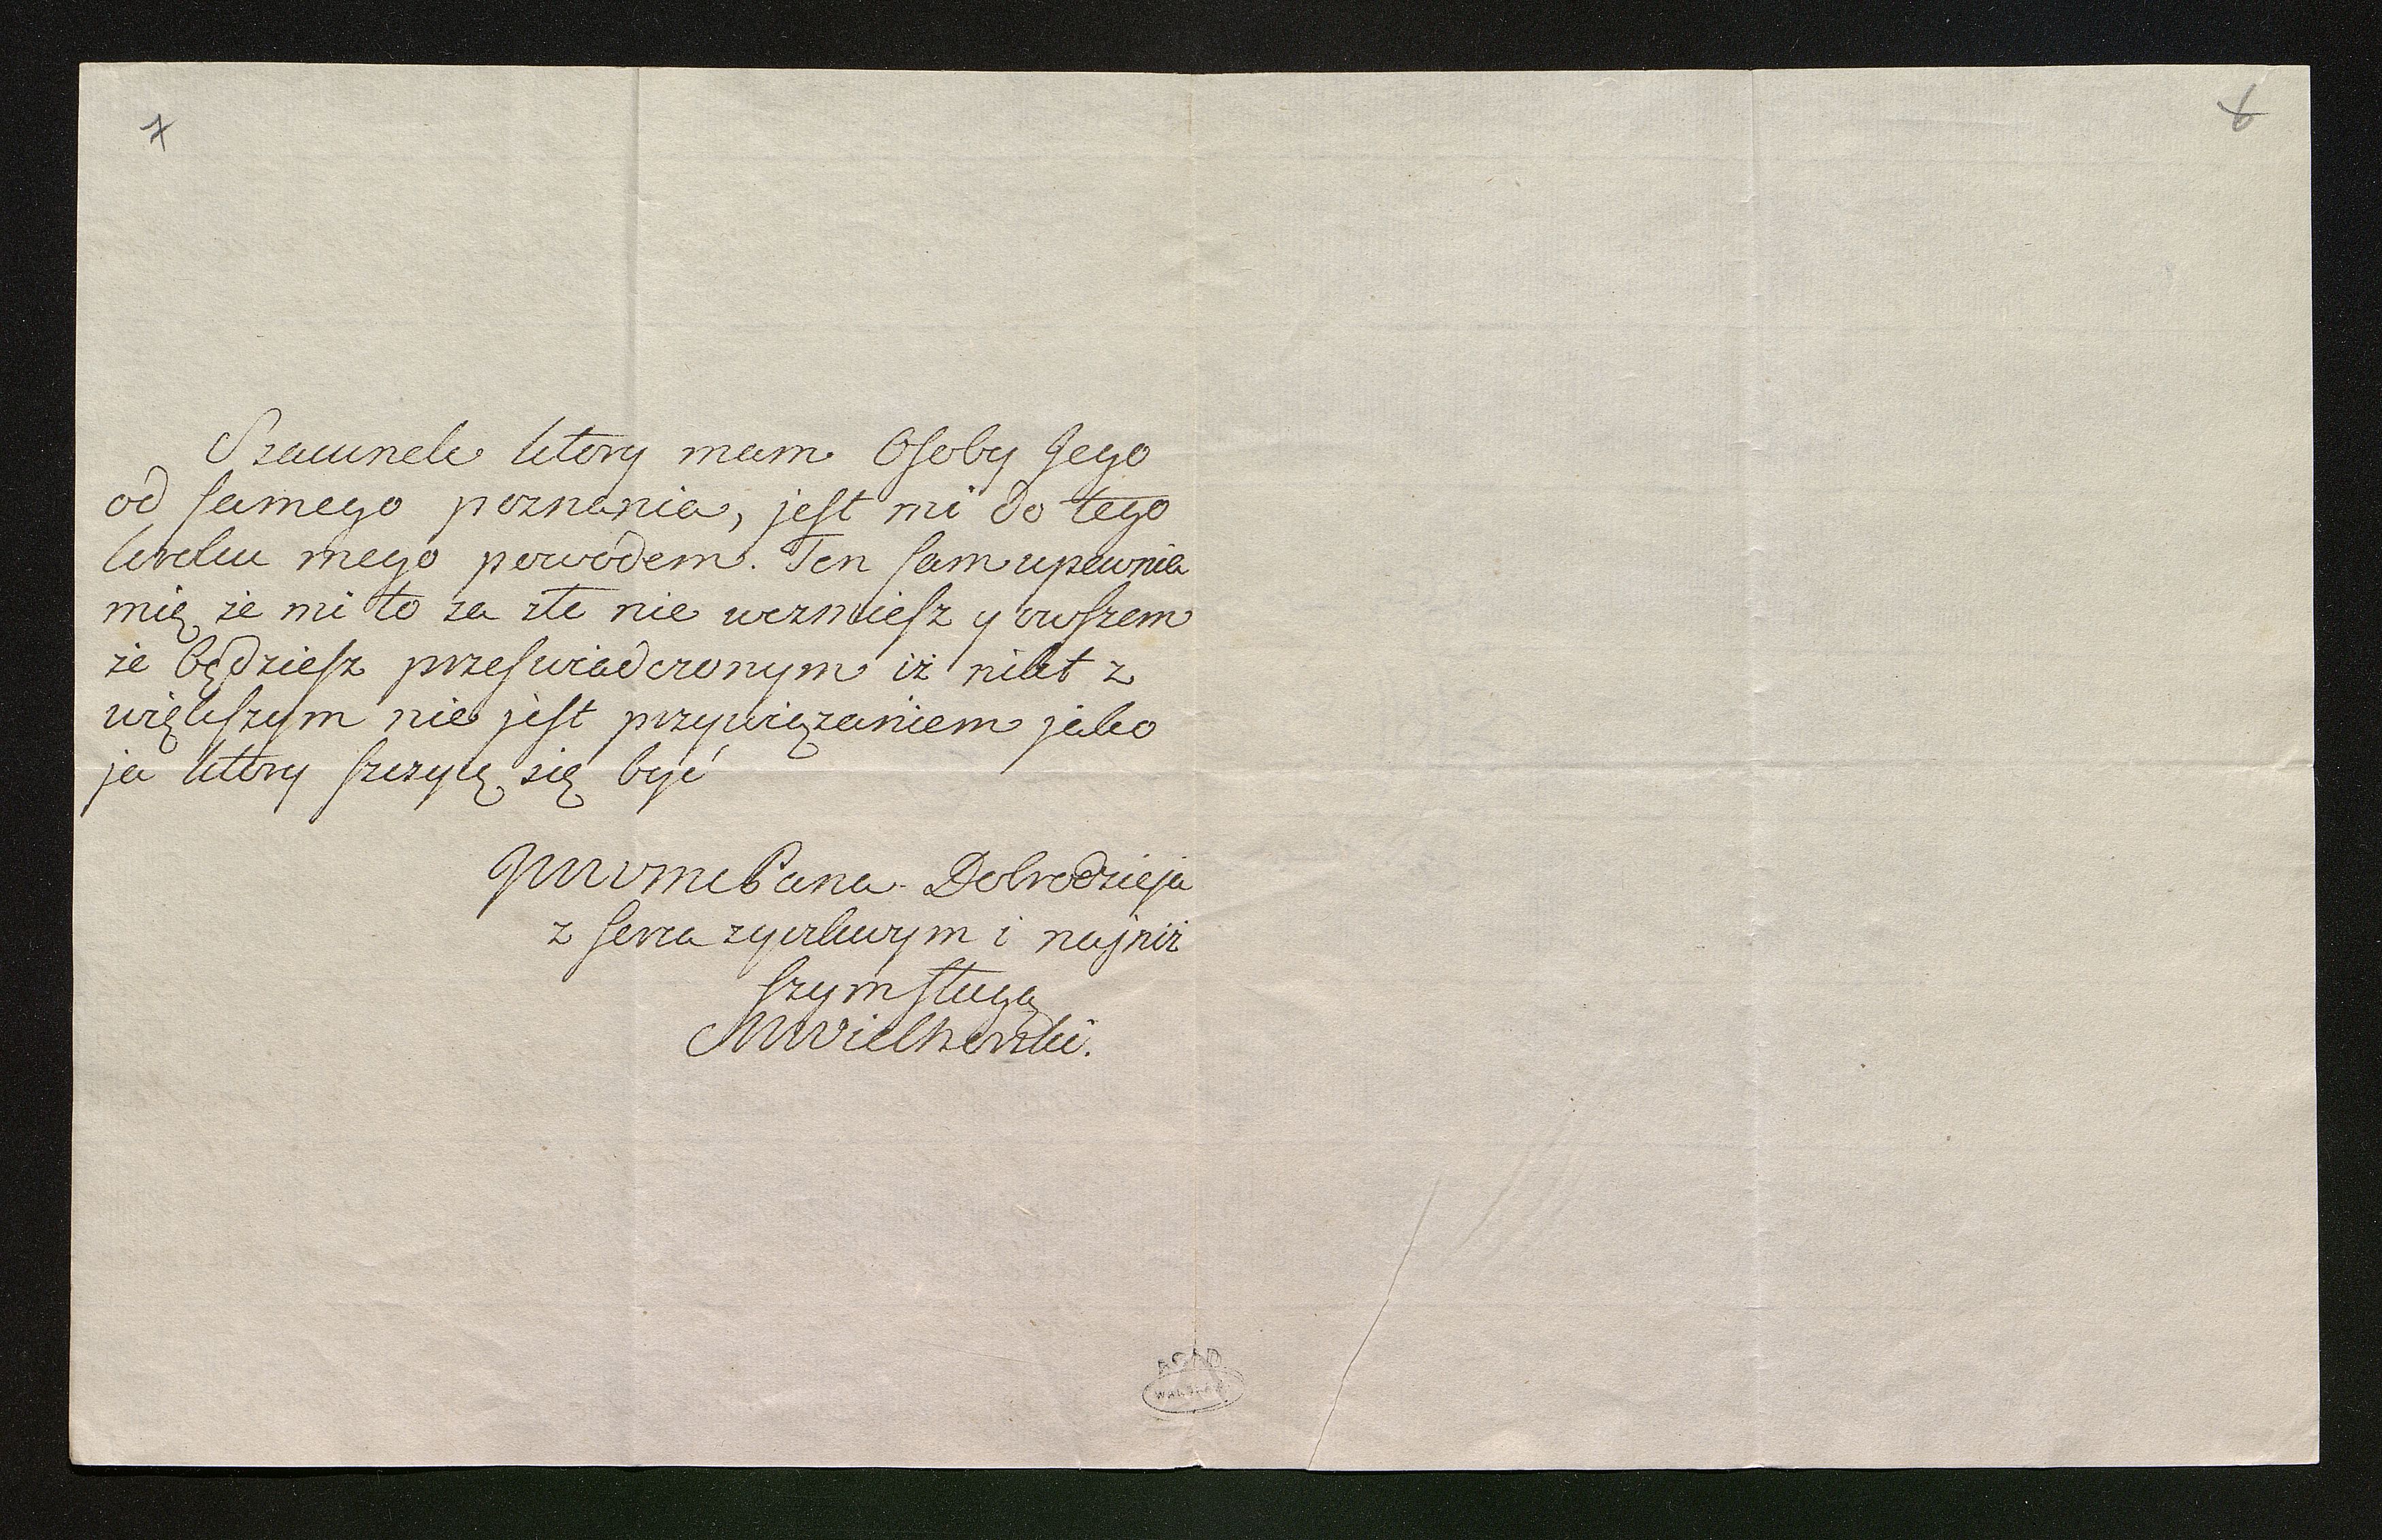 7
8
Szacunek ktory mam Osoby Jego
od samego poznania, jest mi do tego
kroku mego powodem. Ten sam upewnia
mię że mi to za złe nie wezmiesz y owszem
że będziesz przeswiadczonym iż nikt z
większym nie jest przywiązaniem jako
ja ktory szczycę się być
JWWme Pana Dobrodzieja
z serca zyczliwym i najniż
szym sługą
MWielhorski.
AGAD